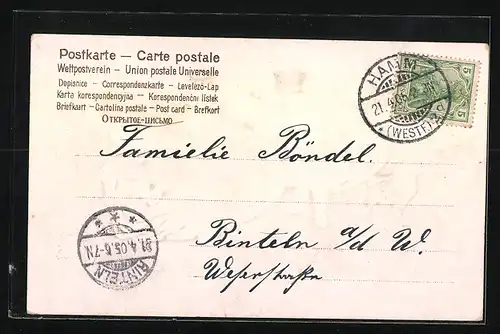 Postkarte — Carte postale
Weltpostverein — Union postale Universelle
Dopisnice — Correspondenzkarte — Levelező-Lap
Karta korespondencyjna — Korespondenčni listek
Briefkaart — Cartolina postale — Post card — Brefkort
Открытое письмо
HAMM
21.4.05
*(WESTF)
5
5
Familie Böndel.
Rinteln a/d W.
Weserstraße
21.4.05.6-7N
RINTELN